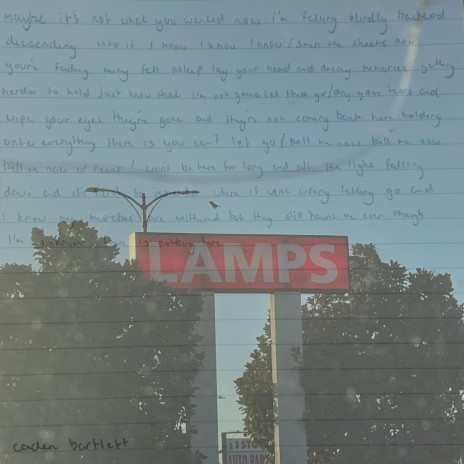 maybe it's not what you wanted now i'm falling blindly backward
descending into it I know I know I know / smell the sheets now
you're fading away fall asleep lay your head and decay memories getting
harder to hold just know that I'm not gonna let them go / dry your tears and
wipe your eyes they're gone and they're not coming back here holding
onto everything there is you can't let go / tell me now tell me now
tell me now or never I won't be here for long and all the light falling
down and it's hard to where it went wrong letting go and
I know withered but they still haunt me even though
I'm there is nothing here
LAMPS
AUTO
caden bartlett